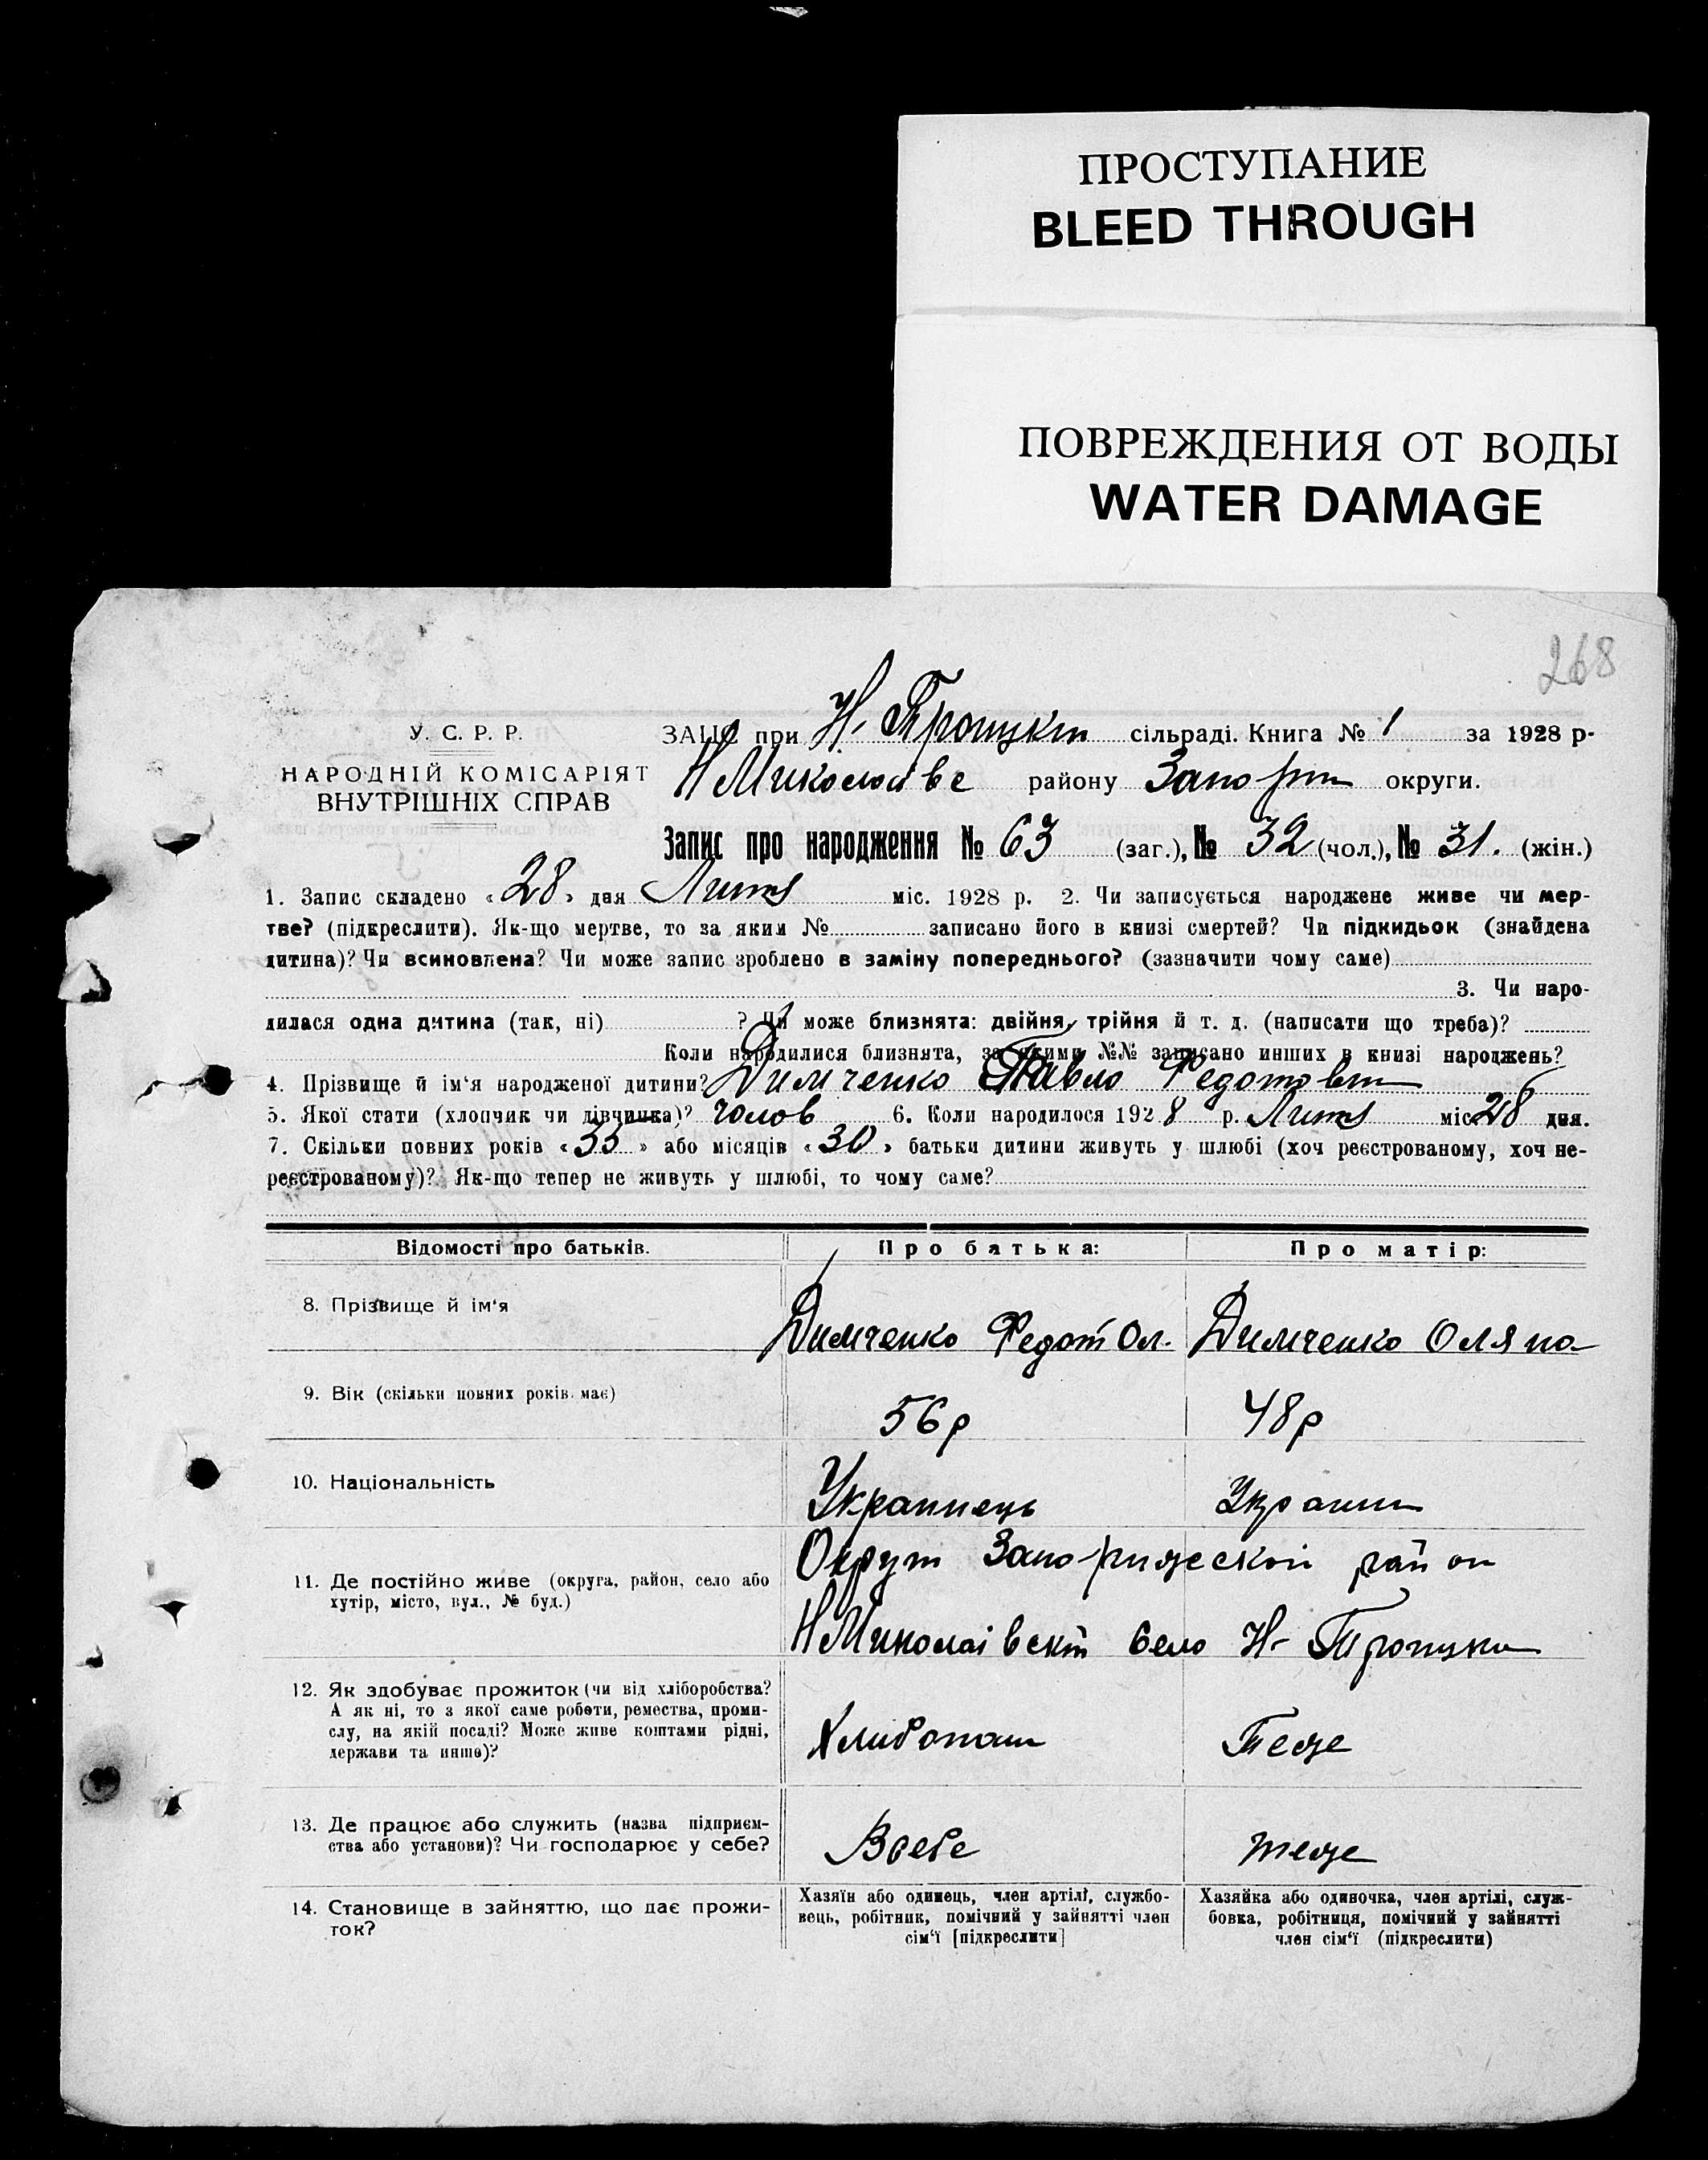 ПРОСТУПАНИЕ
BLEED THROUGH
ПОВРЕЖДЕНИЯ ОТ ВОДЫ
WATER DAMAGE
268
У. С. Р. Р.
НАРОДНІЙ КОМІСАРІЯТ
ВНУТРІШНІХ СПРАВ
ЗАЦС при Н-Троицкт сільраді. Книга № 1 за 1928 р-
Н Миколаівс району Запорт округи.
Запис про народження № 63 (заг.), № 32 (чол.), № 31. (жін.)
1. Запис складено « 28 » дня Лют міс. 1928 р. 2. Чи записується народжене живе чи мер-
тве? (підкреслити). Як-що мертве, то за яким № записано його в книзі смертей? Чи підкидьок (знайдена
дитина)? Чи всиновлена? Чи може запис зроблено в заміну попереднього? (зазначити чому саме)
3. Чи наро-
дилася одна дитина (так, ні) ? Чи може близнята: двійня, трійня й т. д. (написати що треба)?
Коли народилися близнята, за якими №№ записано инших в книзі народжень?
4. Прізвище й ім'я народженої дитини? Димченко Павло Федотовт
5. Якої стати (хлопчик чи дівчинка)? чолов 6. Коли народилося 1928 р. Лют міс 28 дня.
7. Скільки повних років « 35 » або місяців « 30 » батьки дитини живуть у шлюбі (хоч реєстрованому, хоч не-
реєстрованому)? Як-що тепер не живуть у шлюбі, то чому саме?
Відомості про батьків. Про батька: Про матір:
8. Прізвище й ім'я Димченко Федот Ол. Димченко Оляна
9. Вік (скільки повних років має) 56р 48р
10. Національність Украинець Украин
Округи Запорижской район
11. Де постійно живе (округа, район, село або
хутір, місто, вул., № буд.)
Н Миколаівскт село Н-Троицки
12. Як здобуває прожиток (чи від хліборобства?
А як ні, то з якої саме роботи, ремества, проми-
слу, на якій посаді? Може живе коштами рідні,
держави та инше)?
Хлибопаш Теже
13. Де працює або служить (назва підприєм-
ства або установи)? Чи господарює у себе?
Всебе теже
14. Становище в зайняттю, що дає прожи-
ток?
Хазяїн або одинець, член артілі, службо-
вець, робітник, помічний у зайнятті член
сім'ї [підкреслити]
Хазяйка або одиночка, член артілі, служ-
бовка, робітниця, помічний у зайнятті
член сім'ї (підкреслити)